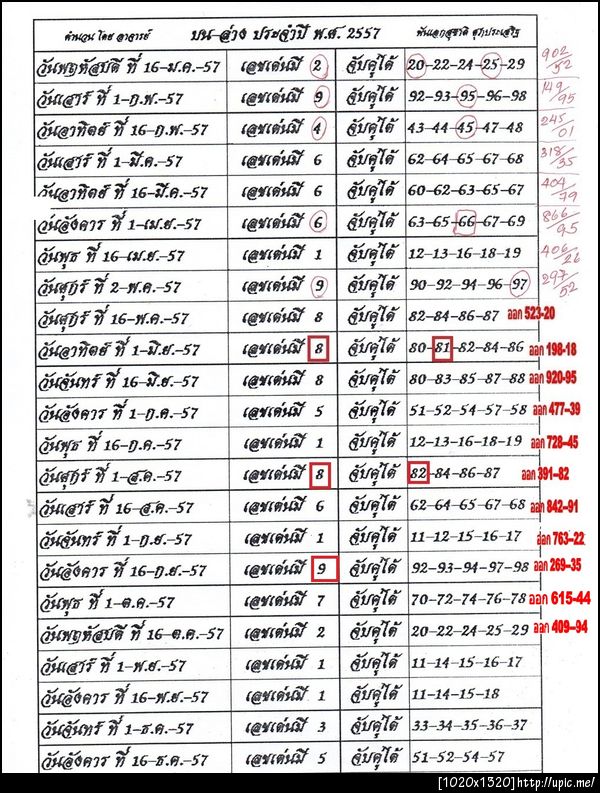 คำนวน โดย อาจารย์ บน-ล่าง ประจำปี พ.ศ. 2557 พันเอกสุชาติ สุภประเสริฐ
วันพฤหัสบดี ที่ 16-ม.ค.-57 เลขเด่นมี 2 จับคู่ได้ 20-22-24-25-29 902/52
วันเสาร์ ที่ 1-ก.พ.-57 เลขเด่นมี 9 จับคู่ได้ 92-93-95-96-98 149/95
วันอาทิตย์ ที่ 16-ก.พ.-57 เลขเด่นมี 4 จับคู่ได้ 43-44-45-47-48 245/01
วันเสาร์ ที่ 1-มี.ค.-57 เลขเด่นมี 6 จับคู่ได้ 62-64-65-67-68 318/35
วันอาทิตย์ ที่ 16-มี.ค.-57 เลขเด่นมี 6 จับคู่ได้ 60-62-63-65-67 404/79
วันอังคาร ที่ 1-เม.ย.-57 เลขเด่นมี 6 จับคู่ได้ 63-65-66-67-69 866/95
วันพุธ ที่ 16-เม.ย.-57 เลขเด่นมี 1 จับคู่ได้ 12-13-16-18-19 406/26
วันศุกร์ ที่ 2-พ.ค.-57 เลขเด่นมี 9 จับคู่ได้ 90-92-94-96-97 297/52
วันศุกร์ ที่ 16-พ.ค.-57 เลขเด่นมี 8 จับคู่ได้ 82-84-86-87 ออก 523-20
วันอาทิตย์ ที่ 1-มิ.ย.-57 เลขเด่นมี 8 จับคู่ได้ 80-81-82-84-86 ออก 198-18
วันจันทร์ ที่ 16-มิ.ย.-57 เลขเด่นมี 8 จับคู่ได้ 80-83-85-87-88 ออก 920-95
วันอังคาร ที่ 1-ก.ค.-57 เลขเด่นมี 5 จับคู่ได้ 51-52-54-57-58 ออก 477-39
วันพุธ ที่ 16-ก.ค.-57 เลขเด่นมี 1 จับคู่ได้ 12-13-16-18-19 ออก 728-45
วันศุกร์ ที่ 1-ส.ค.-57 เลขเด่นมี 8 จับคู่ได้ 82-84-86-87 ออก 391-82
วันเสาร์ ที่ 16-ส.ค.-57 เลขเด่นมี 6 จับคู่ได้ 62-64-65-67-68 ออก 842-91
วันจันทร์ ที่ 1-ก.ย.-57 เลขเด่นมี 1 จับคู่ได้ 11-12-15-16-17 ออก 763-22
วันอังคาร ที่ 16-ก.ย.-57 เลขเด่นมี 9 จับคู่ได้ 92-93-94-97-98 ออก 269-35
วันพุธ ที่ 1-ต.ค.-57 เลขเด่นมี 7 จับคู่ได้ 70-72-74-76-78 ออก 615-44
วันพฤหัสบดี ที่ 16-ต.ค.-57 เลขเด่นมี 2 จับคู่ได้ 20-22-24-25-29 ออก 409-94
วันเสาร์ ที่ 1-พ.ย.-57 เลขเด่นมี 1 จับคู่ได้ 11-14-15-16-17
วันอังคาร ที่ 16-พ.ย.-57 เลขเด่นมี 1 จับคู่ได้ 11-14-15-18
วันจันทร์ ที่ 1-ธ.ค.-57 เลขเด่นมี 3 จับคู่ได้ 33-34-35-36-37
วันอังคาร ที่ 16-ธ.ค.-57 เลขเด่นมี 5 จับคู่ได้ 51-52-54-57
[1020x1320]http://upic.me/